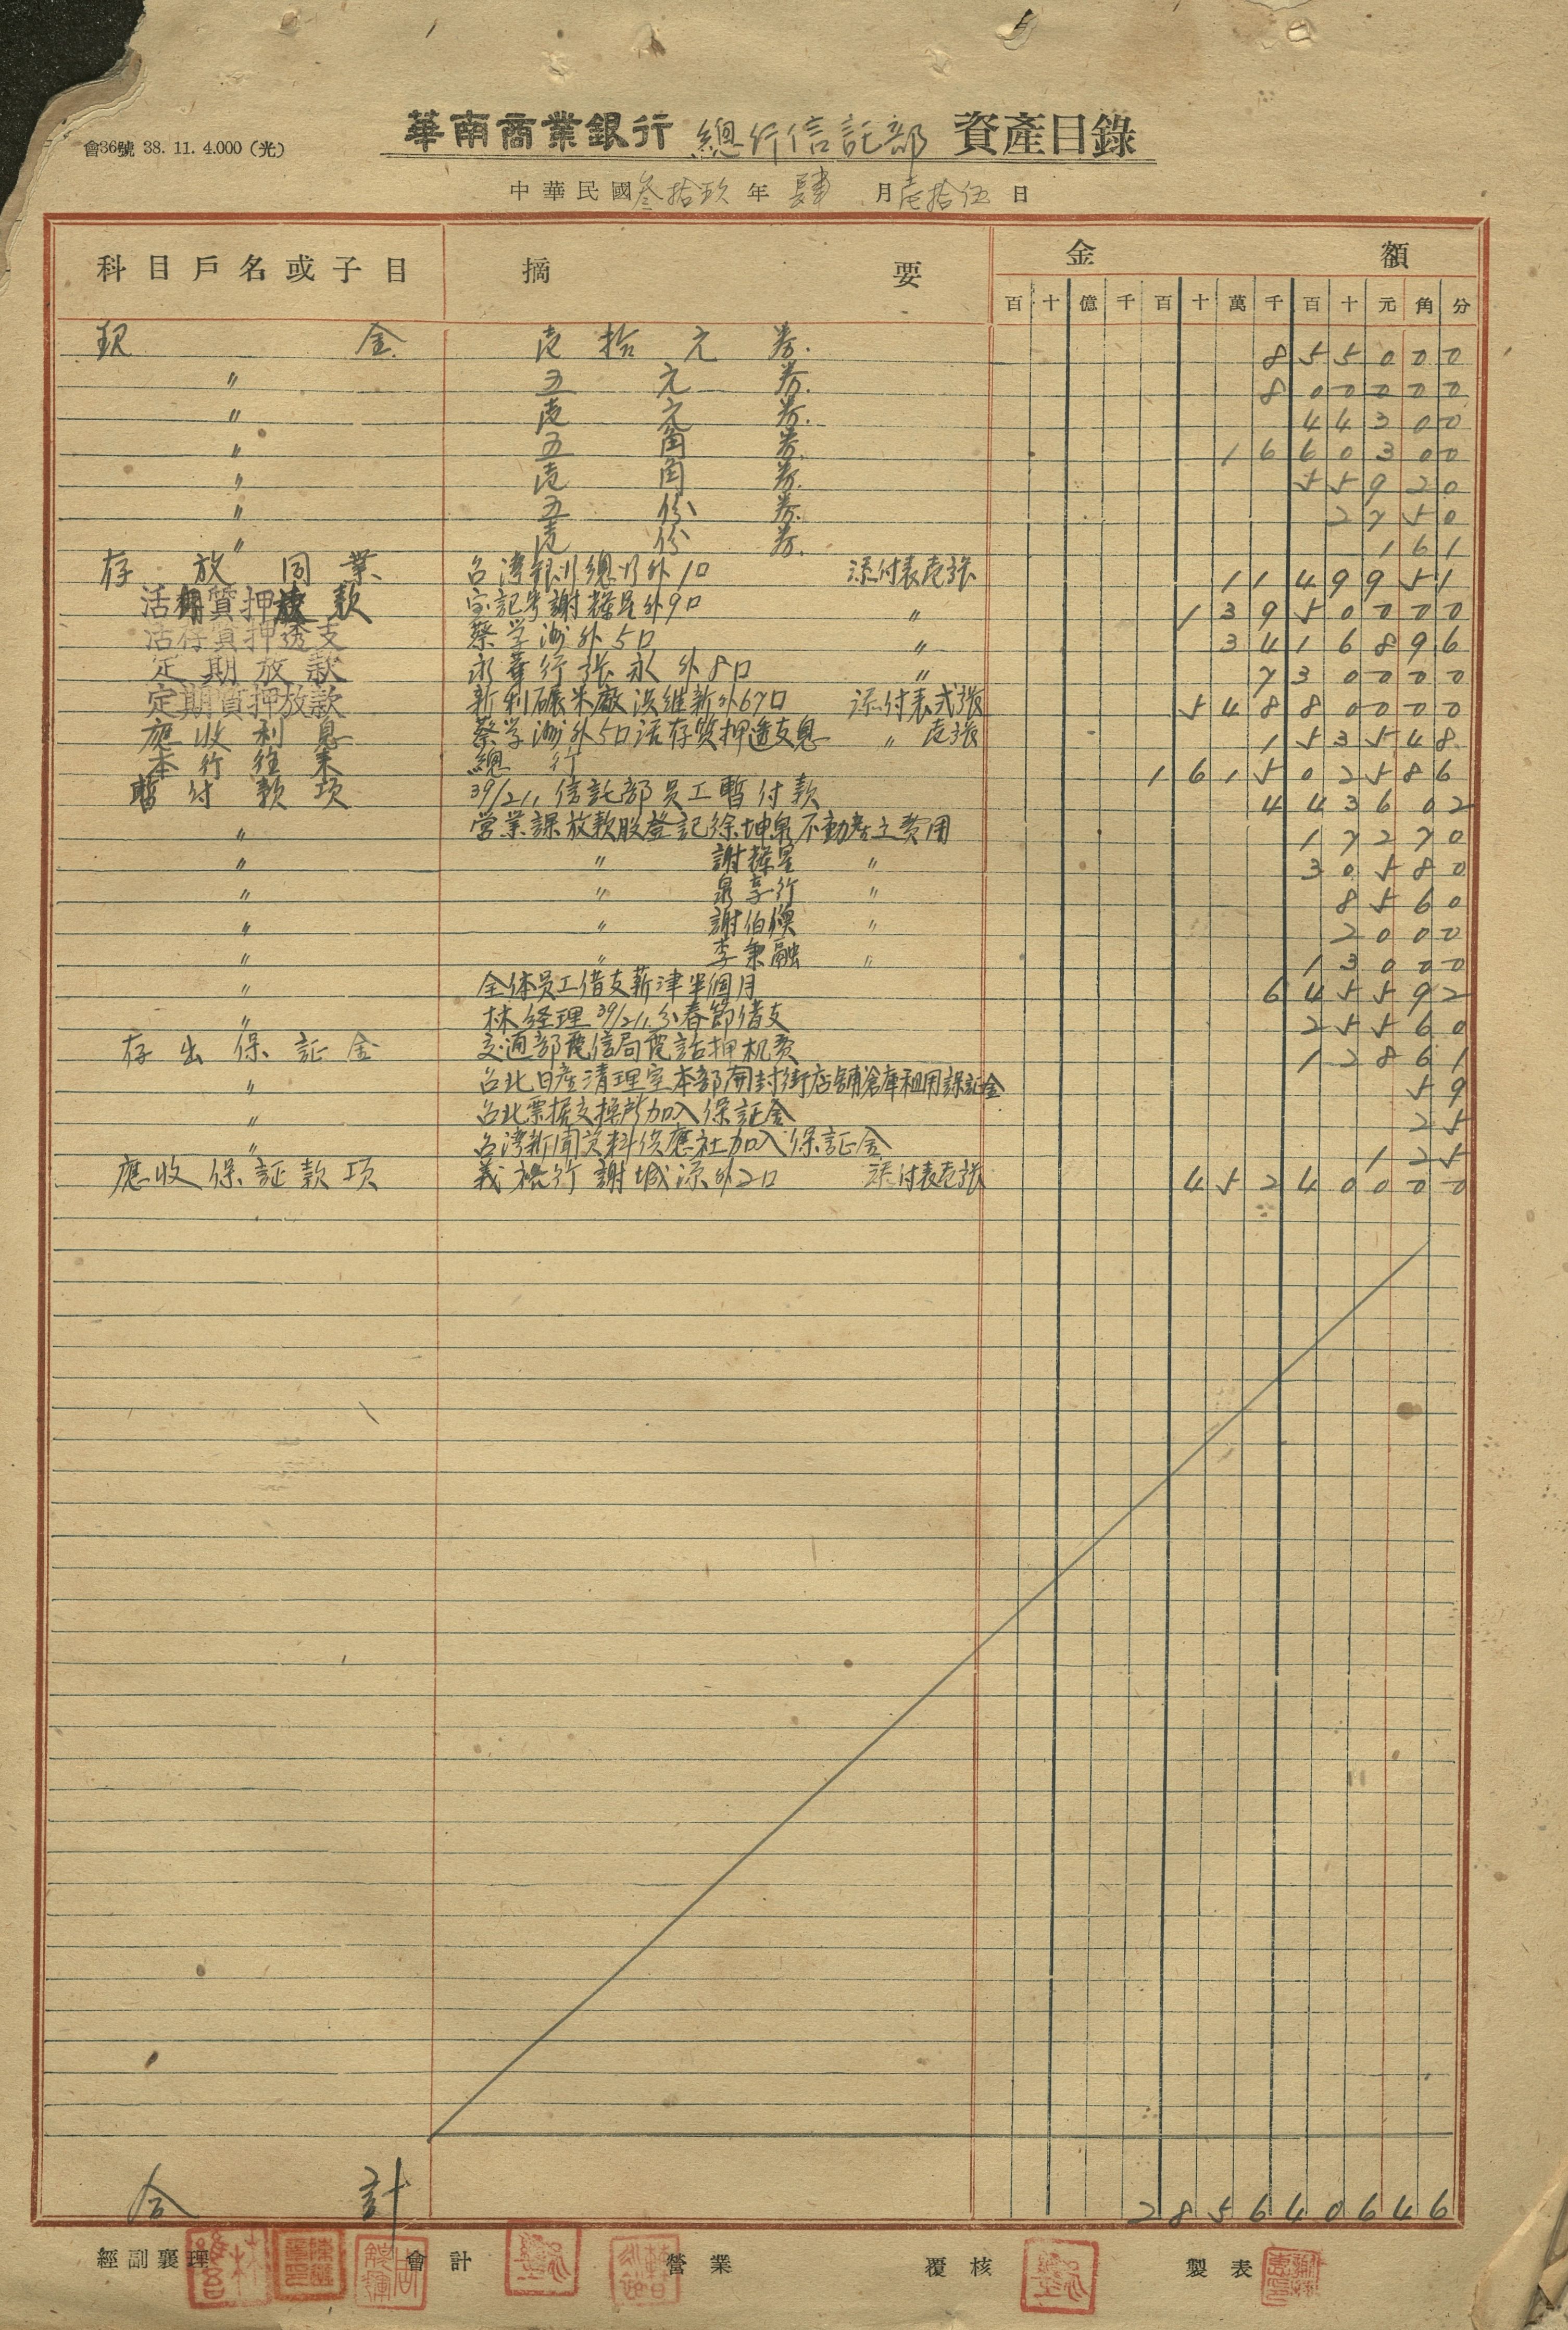 華南商業銀行 總行信託部 資產目錄
會36號 38. 11. 4.000 (光)
中華民國叁拾玖年肆月壱拾伍日
科目戶名或子目 摘要 金額
百 十 億 千 百 十 萬 千 百 十 元 角 分
現金 壱拾元券. 8 5 5 0 0 0
〃 五元券. 8 0 0 0 0 0
〃 壱元券. 4 4 3 0 0
〃 五角券. 1 6 6 0 3 0 0
〃 壱角券. 5 5 9 2 0
〃 五份券. 2 7 5 0
〃 壱份券. 1 6 1
存放同業 台湾銀行總行外1口 添付表壱張 1 1 4 9 9 5 1
活期質押放款 記号謝耀星外9口 〃 1 3 9 5 0 0 0 0
活存質押透支 蔡学渊外5口 〃 3 4 1 6 8 9 6
定期放款 永華行張永外8口 〃 7 3 0 0 0 0
定期質押放款 新利碾米廠洪維新外67口 添付表弍張 5 4 8 8 0 0 0 0
應收利息 蔡学渊外5口活存質押透支息 〃 壱張 1 5 3 5 4 8
本行往来 總行 1 6 1 5 0 2 5 8 6
暫付款項 39/2/1, 信託部員工暫付款 4 4 3 6 0 2
〃 営業課放款股登記徐坤泉不動产立費用 1 7 2 7 0
〃 〃 謝耀星 〃 3 0 5 8 0
〃 〃 泉享行 〃 8 5 6 0
〃 〃 謝伯 〃 2 0 0 0
〃 〃 李秉融 〃 1 3 0 0 0
〃 全体员工借支薪津半個月 6 4 5 5 9 2
〃 林经理39/2/1.分春節借支 2 5 5 6 0
存出保証金 交通部電信局電話押机費 1 2 8 6 1
〃 台北日産清理室本部開封街店舗倉庫租用保証金 5 9
〃 台北票据交換所加入保証金 2 5
〃 台湾新聞資料供應社加入保証金 1 2 5
應收保証款項 義裕行謝城源外2口 添付表壱張 4 5 2 4 0 0 0 0
合計 2 8 5 6 4 0 6 4 6
經副襄理 會計 營業 覆核 製表